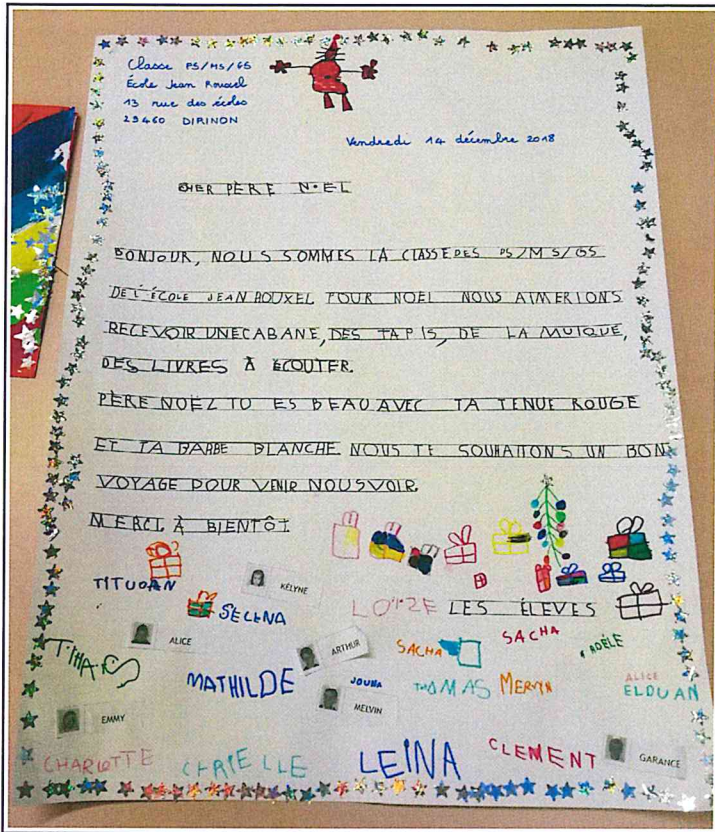 Classe PS/MS/GS
École Jean Rouxel
13 rue des écoles
29460 DIRINON
Vendredi 14 décembre 2018
CHER PÈRE NOEL
BONJOUR, NOUS SOMMES LA CLASSE DES PS/MS/GS
DE L'ÉCOLE JEAN ROUXEL POUR NOEL NOUS AIMERIONS
RECEVOIR UNE CABANE, DES TAPIS, DE LA MUIQUE,
DES LIVRES À ÉCOUTER.
PÈRE NOËL TU ES BEAU AVEC TA TENUE ROUGE
ET TA BARBE BLANCHE NOUS TE SOUHAITONS UN BON
VOYAGE POUR VENIR NOUS VOIR.
MERCI, À BIENTÔT
TITOUAN
KÉLYNE
SELENA
LES ÉLÈVES
ALICE
ARTHUR
SACHA
SACHA
ADÈLE
MATHILDE
JOUNA
THOMAS
MERVYN
ALICE
ELOUAN
MELVIN
EMMY
CHARLOTTE
LEINA
CLEMENT
GARANCE